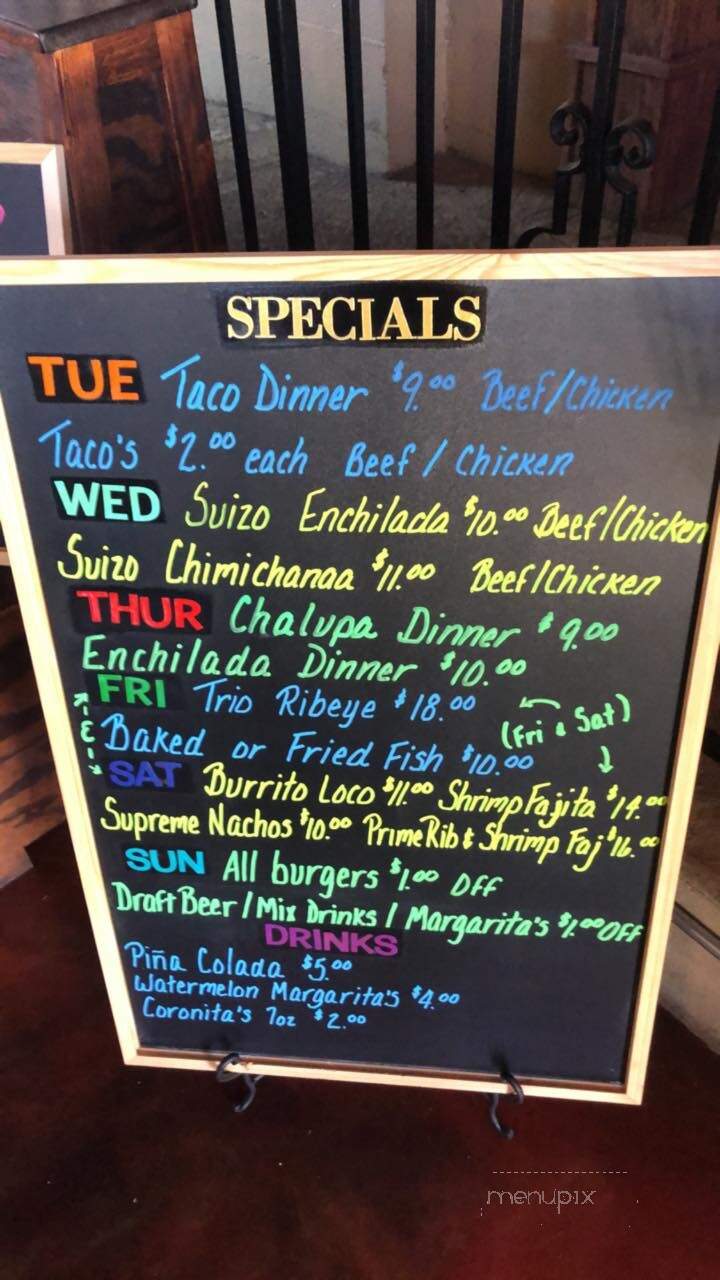 SPECIALS
TUE Taco Dinner $9.00 Beef/Chicken
Taco's $2.00 each Beef / Chicken
WED Suizo Enchilada $10.00 Beef/Chicken
Suizo Chimichanga $11.00 Beef/Chicken
THUR Chalupa Dinner $9.00
Enchilada Dinner $10.00
FRI Trio Ribeye $18.00
(Fri & Sat)
&
Baked or Fried Fish $10.00
SAT Burrito Loco $11.00 Shrimp Fajita $14.00
Supreme Nachos $10.00 Prime Rib & Shrimp Faj $16.00
SUN All burgers $1.00 Off
Draft Beer / Mix Drinks / Margarita's $1.00 Off
DRINKS
Piña Colada $5.00
Watermelon Margarita's $4.00
Coronita's 7oz $2.00
menupix